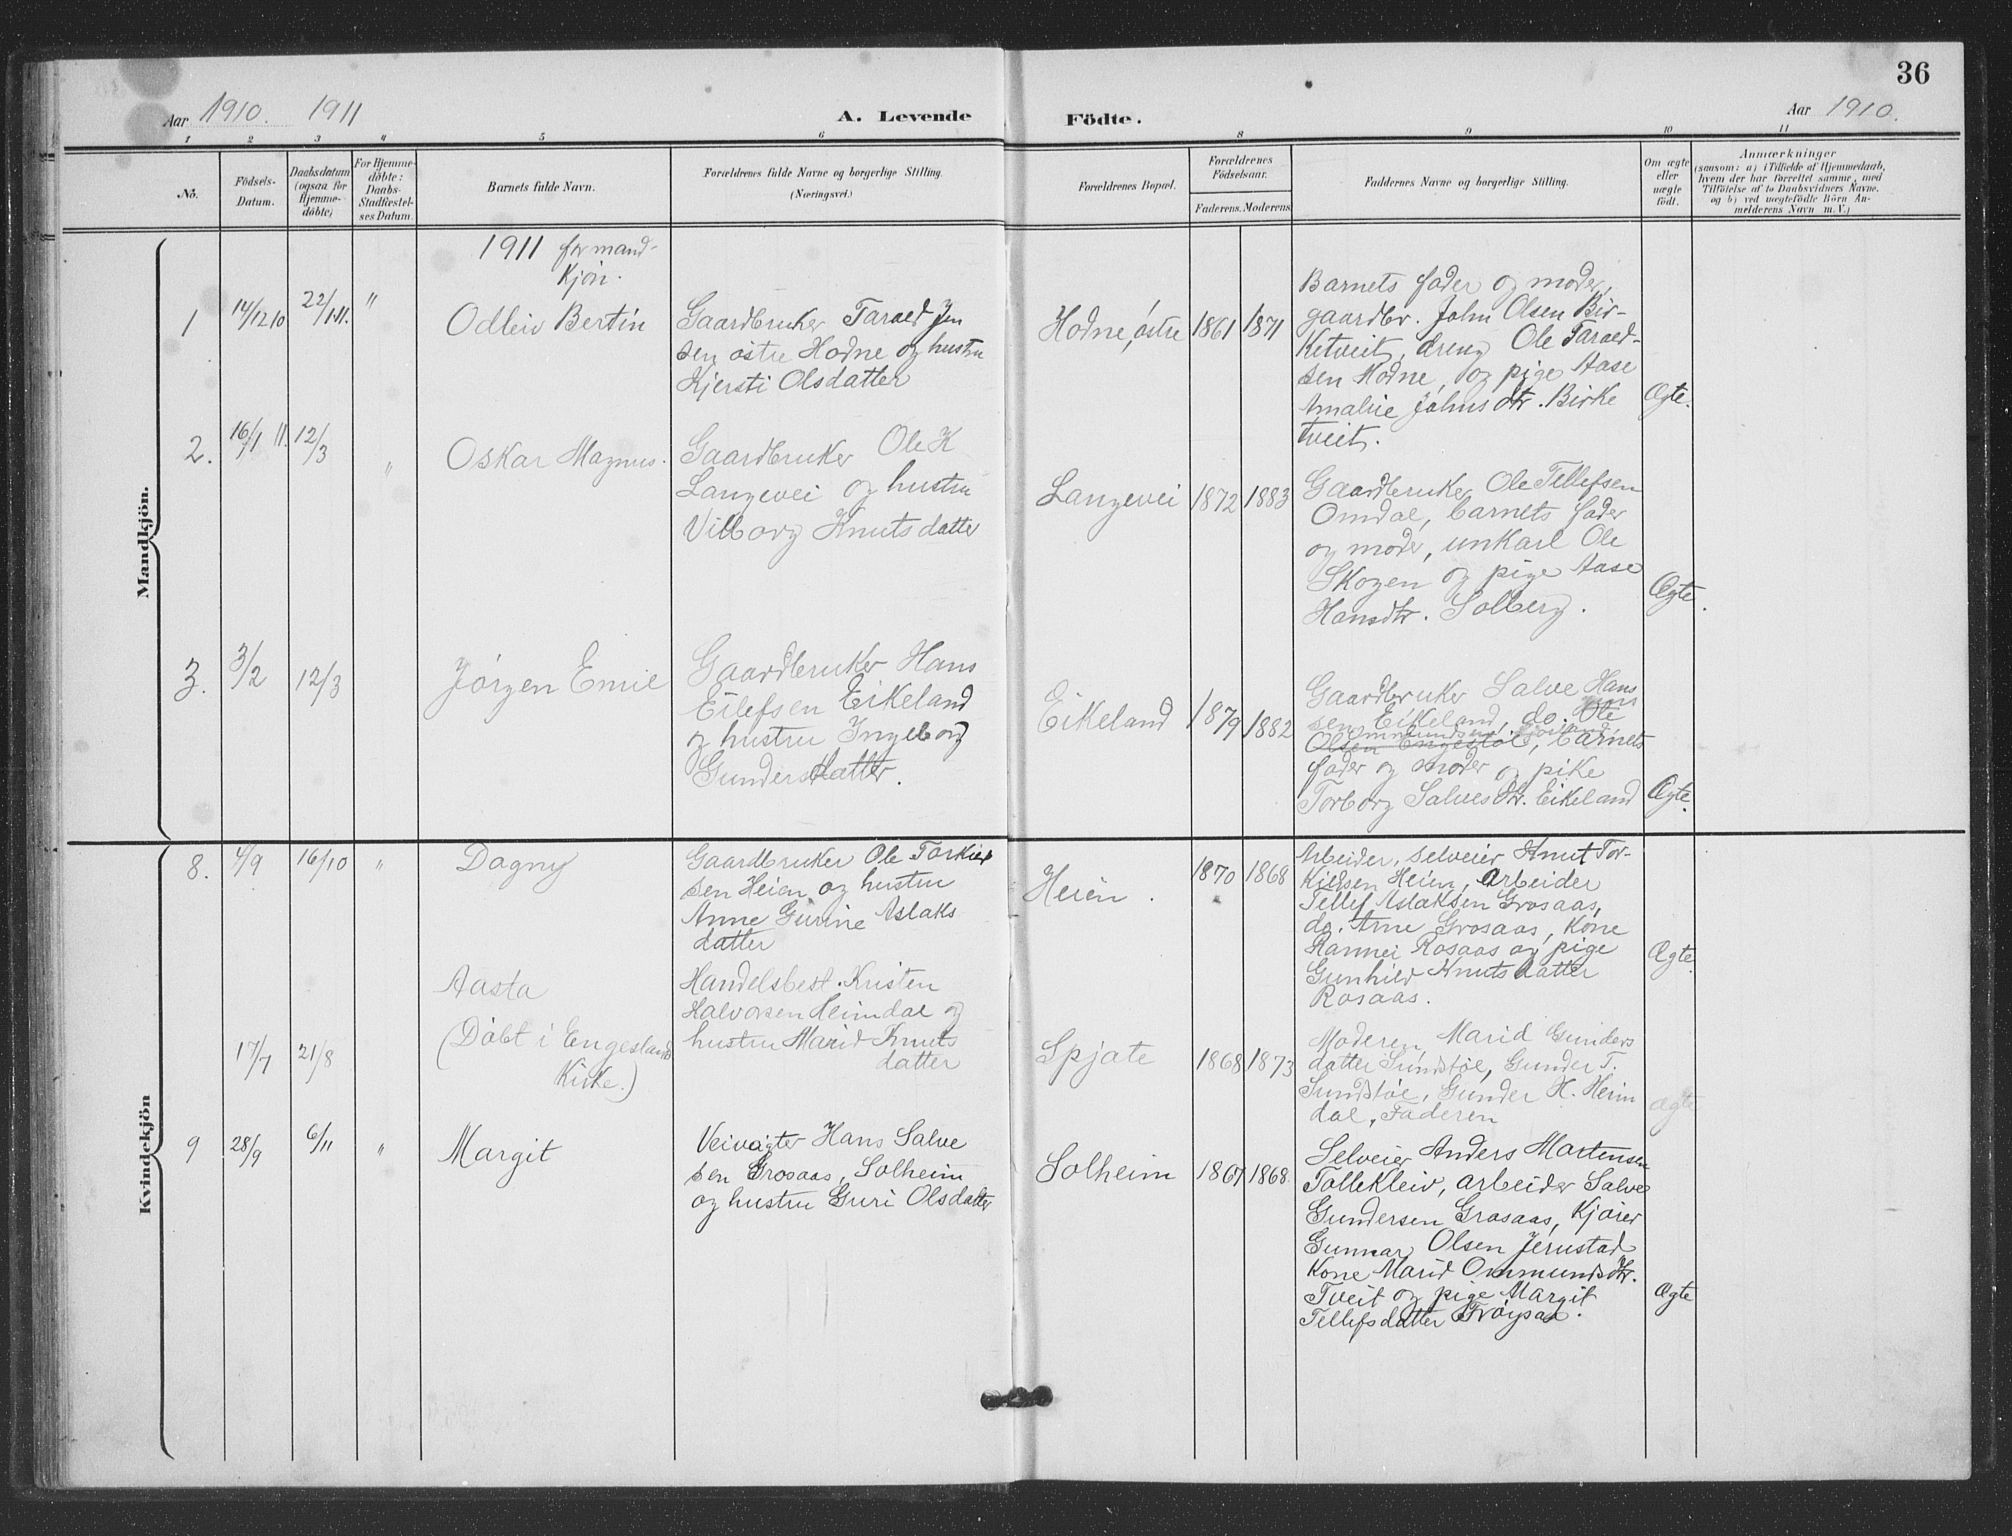 36
Aar 1910. 1911
A. Levende Födte.
Aar 1910.
1 2 3 4 5 6 8 9 10 11
No.
Födsels-
Datum.
Daabsdatum
(ogsaa for
Hjemme-
döbte)
For Hjemme-
döbte:
Daabs-
Stadfæstel-
ses Datum.
Barnets fulde Navn.
Forældrenes fulde Navne og borgerlige Stilling.
(Næringsvei.)
Forældrenes Bopæl.
Forældrenes
Födselsaar.
Faderens. Moderens.
Faddernes Navne og borgerlige Stilling.
Om ægte
eller
uægte
födt.
Anmærkninger
(saasom: a) i Tilfælde af Hjemmedaab,
hvem der har forrettet samme, med
Tilföielse af to Daabsvidners Navne.
og b) ved uægtefödte Börn An-
melderens Navn m. V.)
Mandkjön.
1911 for mand-
Kjön.
1 14/12 10 22/1 11. " Odleiv Bertin
Gaardbruker Tarald Jen
sen östre Hodne og hustru
Kjersti Olsdatter
Hodne, östre 1861 1871
Barnets fader og moder,
gaardbr. John Olsen Bir-
ketveit, dreng Ole Tarald-
sen Hodne, og pige Aase
Amalie Johnsdtr. Birke
tveit.
Ægte.
2. 16/1 11. 12/3 " Oskar Magnus.
Gaardbruker Ole K
Langevei og hustru
Vilborg Knutsdatter
Langevei 1872 1883
Gaardbruker Ole Tellefsen
Omdal, barnets fader
og moder, unkarl Ole
Skogen og pige Aase
Hansdtr. Solberg.
Ægte.
3. 3/2 12/3 Jörgen Emil
Gaardbruker Hans
Eilefsen Eikeland
og hustru Ingeborg
Gundersdatter.
Eikeland 1879 1882
Gaardbruker Salve Hans
sen Eikeland, do. Ole
Olsen Engestöl, barnets
fader og moder og pike
Torborg Salvesdtr. Eikeland
Ægte.
Kvindekjön
8. 4/9 16/10 " Dagny
Gaardbruker Ole Torkiel
sen Heien og hustru
Anne Gurine Aslaks
datter
Heien. 1870 1868
Arbeider, selveier Knut Tor-
kildsen Heien, Arbeider
Tellef Aslaksen Grosaas,
do. Arne Grosaas, Kone
Rannei Rosaas og pige
Gunhild Knutsdatter
Rosaas.
Ægte.
17/7 21/8 Aasta
(Döbt i Engesland
Kirke.)
Handelsbest. Kristen
Halvorsen Heimdal og
hustru Marid Knuts
datter
Spjote 1868 1873
Moderen, Marid Gunders
datter Sundstöl, Gunder T.
Sundstöl, Gunder H. Heim
dal, Faderen
Ægte
9 28/9 6/11 " Margit
Veivogter Hans Salve
sen Grosaas, Solheim
og hustru Guri Olsdatter
Solheim 1867 1868.
Selveier Anders Mortensen
Tallekleiv, arbeider Salve
Gundersen Grosaas, Kjörer
Gunnar Olsen Jerustad
Kone Marid Ommundsdtr.
Tveit og pige Margit
Tellefsdatter Fröysaa.
Ægte